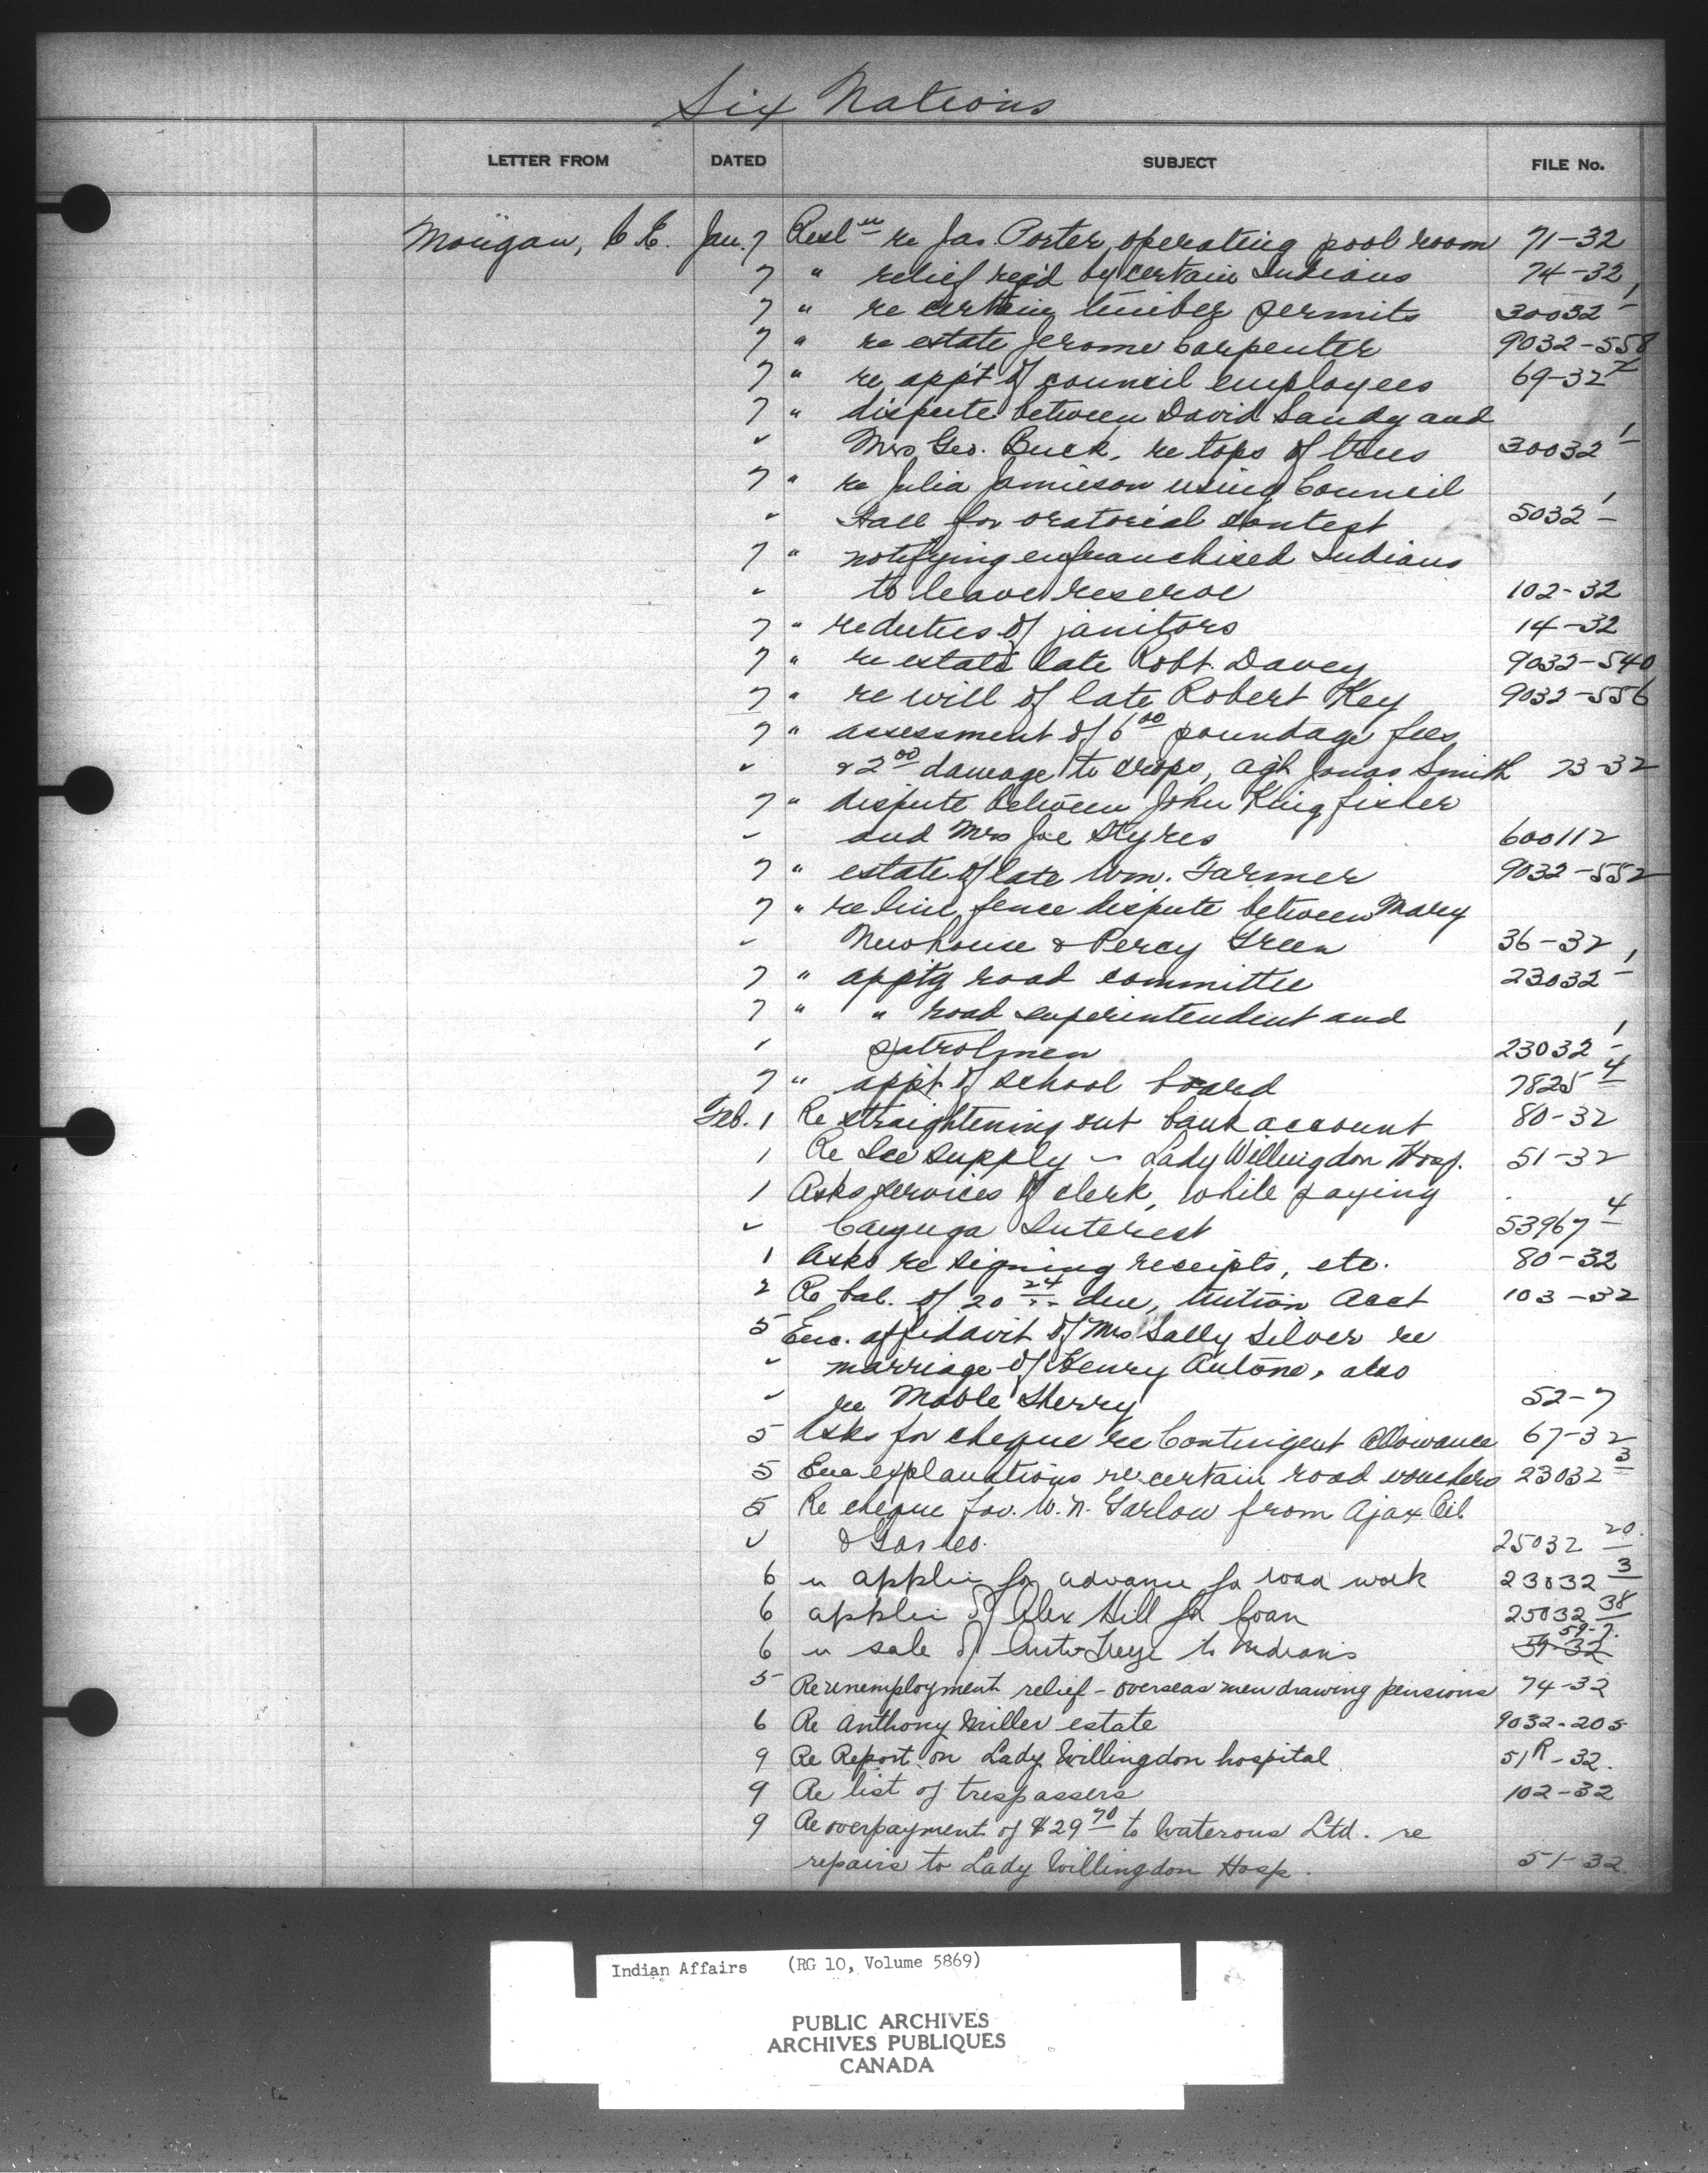 Six Nations
LETTER FROM DATED SUBJECT FILE No.
Morgan, C.E. Jan. 7 Resl n re Jas. Porter, operating pool room 71-32
7 " relief req'd by certain Indians 74-32
7 " re certain timber permits 30032-1
7 " re estate Jerome Carpenter 9032-558
7 " re app't of council employees 69-32-2
7 " dispute between David Sandy and
" Mrs Geo. Buck, re tops of trees 30032-1
7 " re Julia Jamieson using Council
" Hall for oratorical contest 5032-1
7 " notifying enfranchised Indians
" to leave reserve 102-32
7 " re duties of janitors 14-32
7 " re estate late Robt. Davey 9032-540
7 " re will of late Robert Key 9032-556
7 " assessment of 6 00 poundage fees
" & 2 00 damage to crops, agt Jonas Smith 73-32
7 " dispute between John Kingfisher
" and Mrs Joe Styres 600112
7 " estate of late Wm. Farmer 9032-552
7 " re line fence dispute between Mary
" Newhouse & Percy Green 36-32
7 " app'tg road committee 23032-1
7 " " road superintendent and
" patrolmen 23032-1
7 " app't of school board 7825-4
Feb. 1 Re straightening out bank account 80-32
1 Re Ice supply - Lady Willingdon Hosp. 51-32
1 Asks services of clerk, while paying
" Cayuga Interest 53967-4
1 Asks re signing receipts, etc. 80-32
2 Re bal. of 20 24 due, tuition Acct 103-32
5 Enc. affidavit of Mrs Sally Silver re
" marriage of Henry Antone, also
" re Mable Sherry 52-7
5 Asks for cheque re Contingent Allowance 67-32
5 Enc explanations re certain road vouchers 23032-3
5 Re cheque fav. W.N. Garlow from Ajax Oil
" & Gas Co. 25032-20
6 re applic for advance for road work 23032-3
6 applic of Alex Hill for loan 25032-38
6 re sale of Anti-Freeze to Indians 59-7
5 Re unemployment relief - overseas men drawing pensions 74-32
6 Re Anthony Miller estate 9032-205
9 Re Report on Lady Willingdon hospital 51R-32.
9 Re list of trespassers 102-32
9 Re overpayment of $29 70 to Waterous Ltd. re
repairs to Lady Willingdon Hosp. 51-32
Indian Affairs (RG 10, Volume 5869)
PUBLIC ARCHIVES
ARCHIVES PUBLIQUES
CANADA